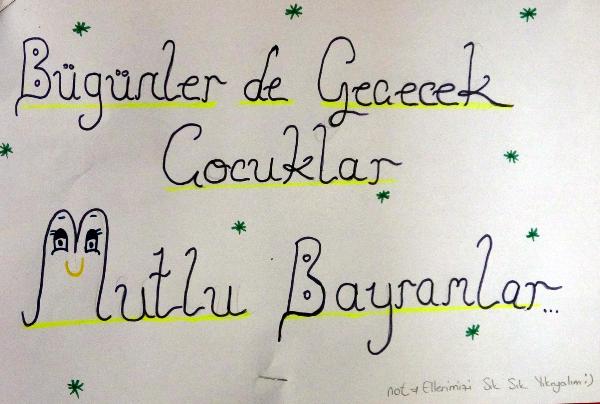 Bügünler de Geçecek
Çocuklar
Mutlu Bayramlar...
not → Ellerimizi Sık Sık Yıkayalım :)